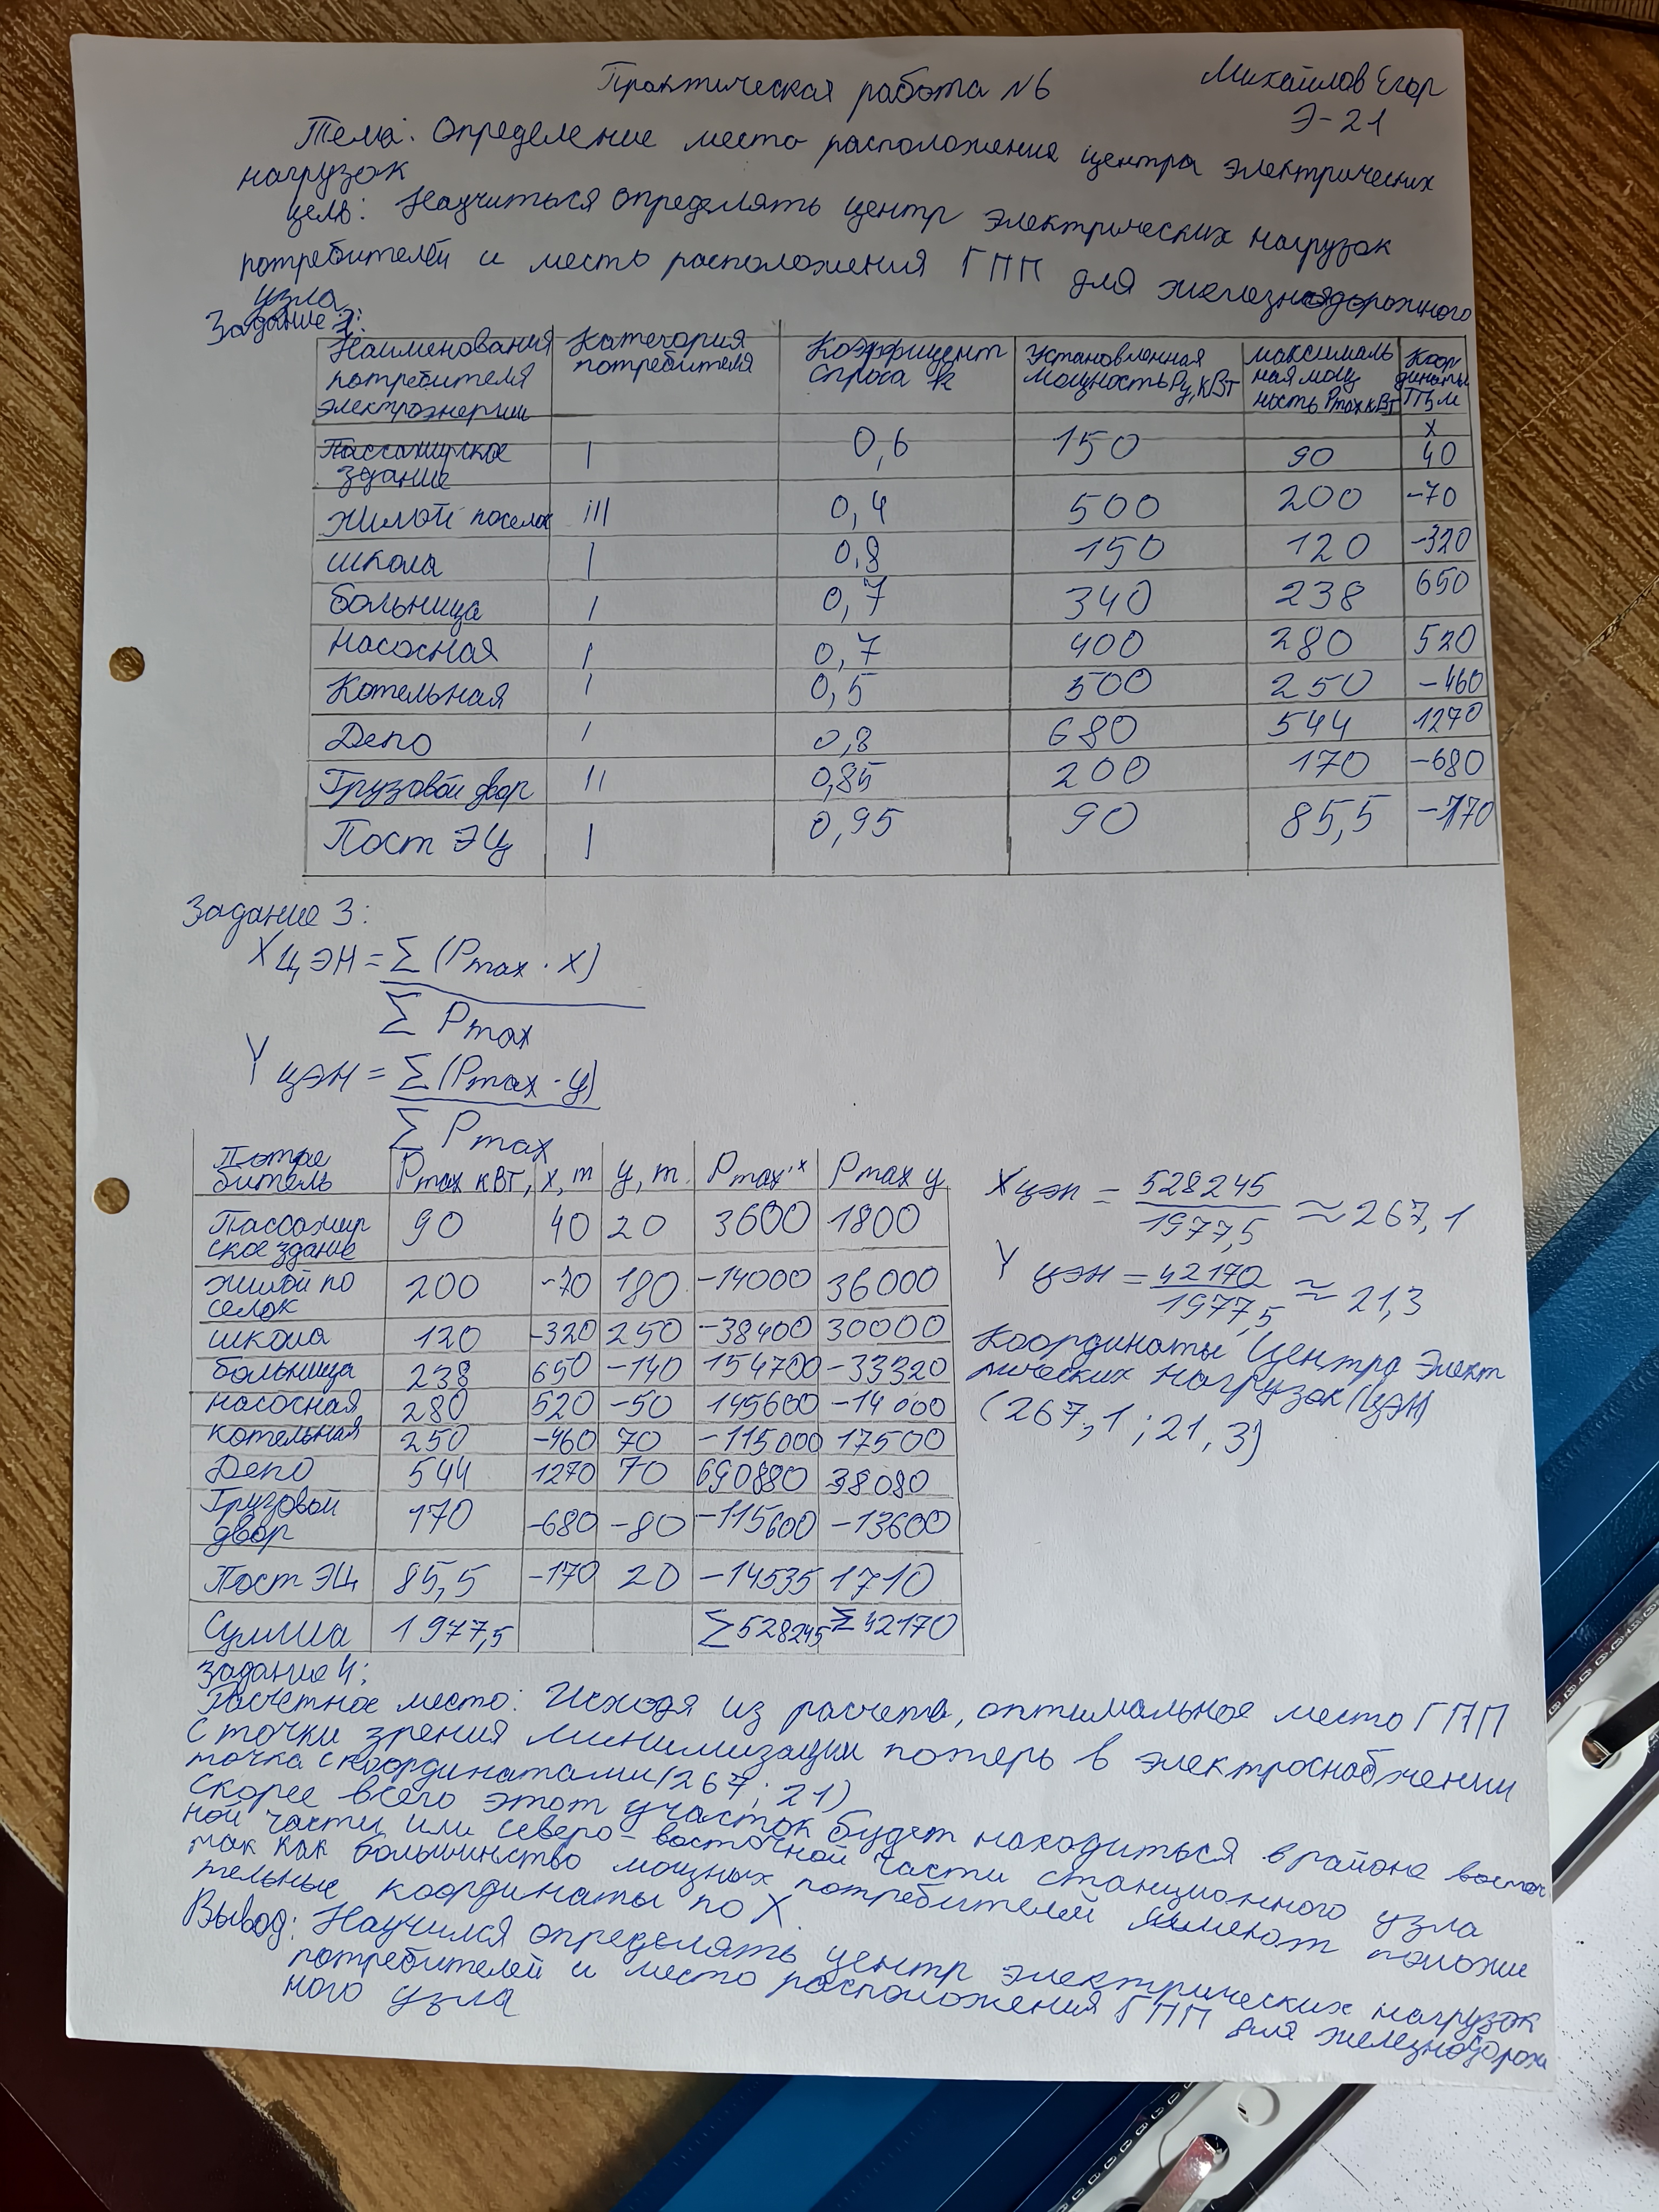 Практическая работа №6
Михайлов Егор
Э-21
Тема: Определение место расположения центра электрических
нагрузок
Цель: Научиться определять центр электрических нагрузок
потребителей и место расположения ГПП для железнодорожного
узла
Задание 2:
Наименования потребителя электроэнергии | Категория потребителя | Коэффицент спроса k | Установленная мощность Pу, кВт | максималь ная мощ ность Pmax кВт | Коор динаты ТП, м
x
Пассажирское здание | I | 0,6 | 150 | 90 | 40
Жилой поселок | III | 0,4 | 500 | 200 | -70
школа | I | 0,8 | 150 | 120 | -320
больница | I | 0,7 | 340 | 238 | 650
насосная | I | 0,7 | 400 | 280 | 520
Котельная | I | 0,5 | 500 | 250 | -460
Депо | I | 0,8 | 680 | 544 | 1270
Грузовой двор | II | 0,85 | 200 | 170 | -680
Пост ЭЦ | I | 0,95 | 90 | 85,5 | -170
Задание 3:
X ЦЭН = Σ (Pmax · X)
Σ Pmax
Y ЦЭН = Σ (Pmax · y)
Σ Pmax
Потре битель | Pmax кВт, | x, m | y, m. | Pmax·x | Pmax y
Пассажир ское здание | 90 | 40 | 20 | 3600 | 1800
жилой по селок | 200 | -70 | 180 | -14000 | 36000
школа | 120 | -320 | 250 | -38400 | 30000
больница | 238 | 650 | -140 | 154700 | -33320
насосная | 280 | 520 | -50 | 145600 | -14000
котельная | 250 | -460 | 70 | -115000 | 17500
Депо | 544 | 1270 | 70 | 690880 | 38080
Грузовой двор | 170 | -680 | -80 | -115600 | -13600
Пост ЭЦ | 85,5 | -170 | 20 | -14535 | 1710
Сумма | 1977,5 | Σ528245 | Σ42170
X ЦЭН = 528245 / 1977,5 ≈ 267,1
Y ЦЭН = 42170 / 1977,5 ≈ 21,3
Координаты Центра Элект
рических нагрузок (ЦЭН)
(267,1 ; 21,3)
Задание 4:
Расчетное место: Исходя из расчета, оптимальное место ГПП
с точки зрения минимизации потерь в электроснабжении
точка с координатами (267; 21)
Скорее всего этот участок будет находиться в районе восточ
ной части или северо-восточной части станционного узла
так как большинство мощных потребителей имеют положи
тельные координаты по X.
Вывод: Научился определять центр электрических нагрузок
потребителей и место расположения ГПП для железнодорож
ного узла